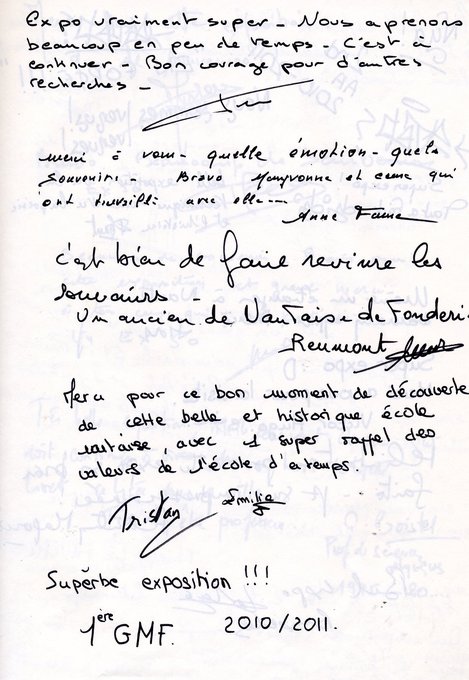 Expo vraiment super - Nous aprenons
beaucoup en peu de temps - C'est à
continuer - Bon courage pour d'autres
recherches -
merci à vous - quelle émotion - quels
souvenirs - Bravo Maryvonne et ceux qui
ont travaillé avec elle --
Anne
c'est bien de faire revivre les
souvenirs -
Un ancien de Vantaise de Fonderie
Reumont
Merci pour ce bon moment de découverte
de cette belle et historique école
nantaise, avec 1 super rappel des
valeurs de l'école d'antemps.
Tristan Emilie
Supèrbe exposition !!!
1ère GMF. 2010/2011.